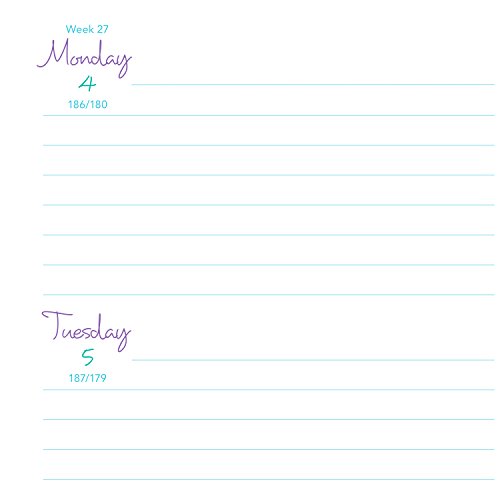 Week 27
Monday
4
186/180
Tuesday
5
187/179